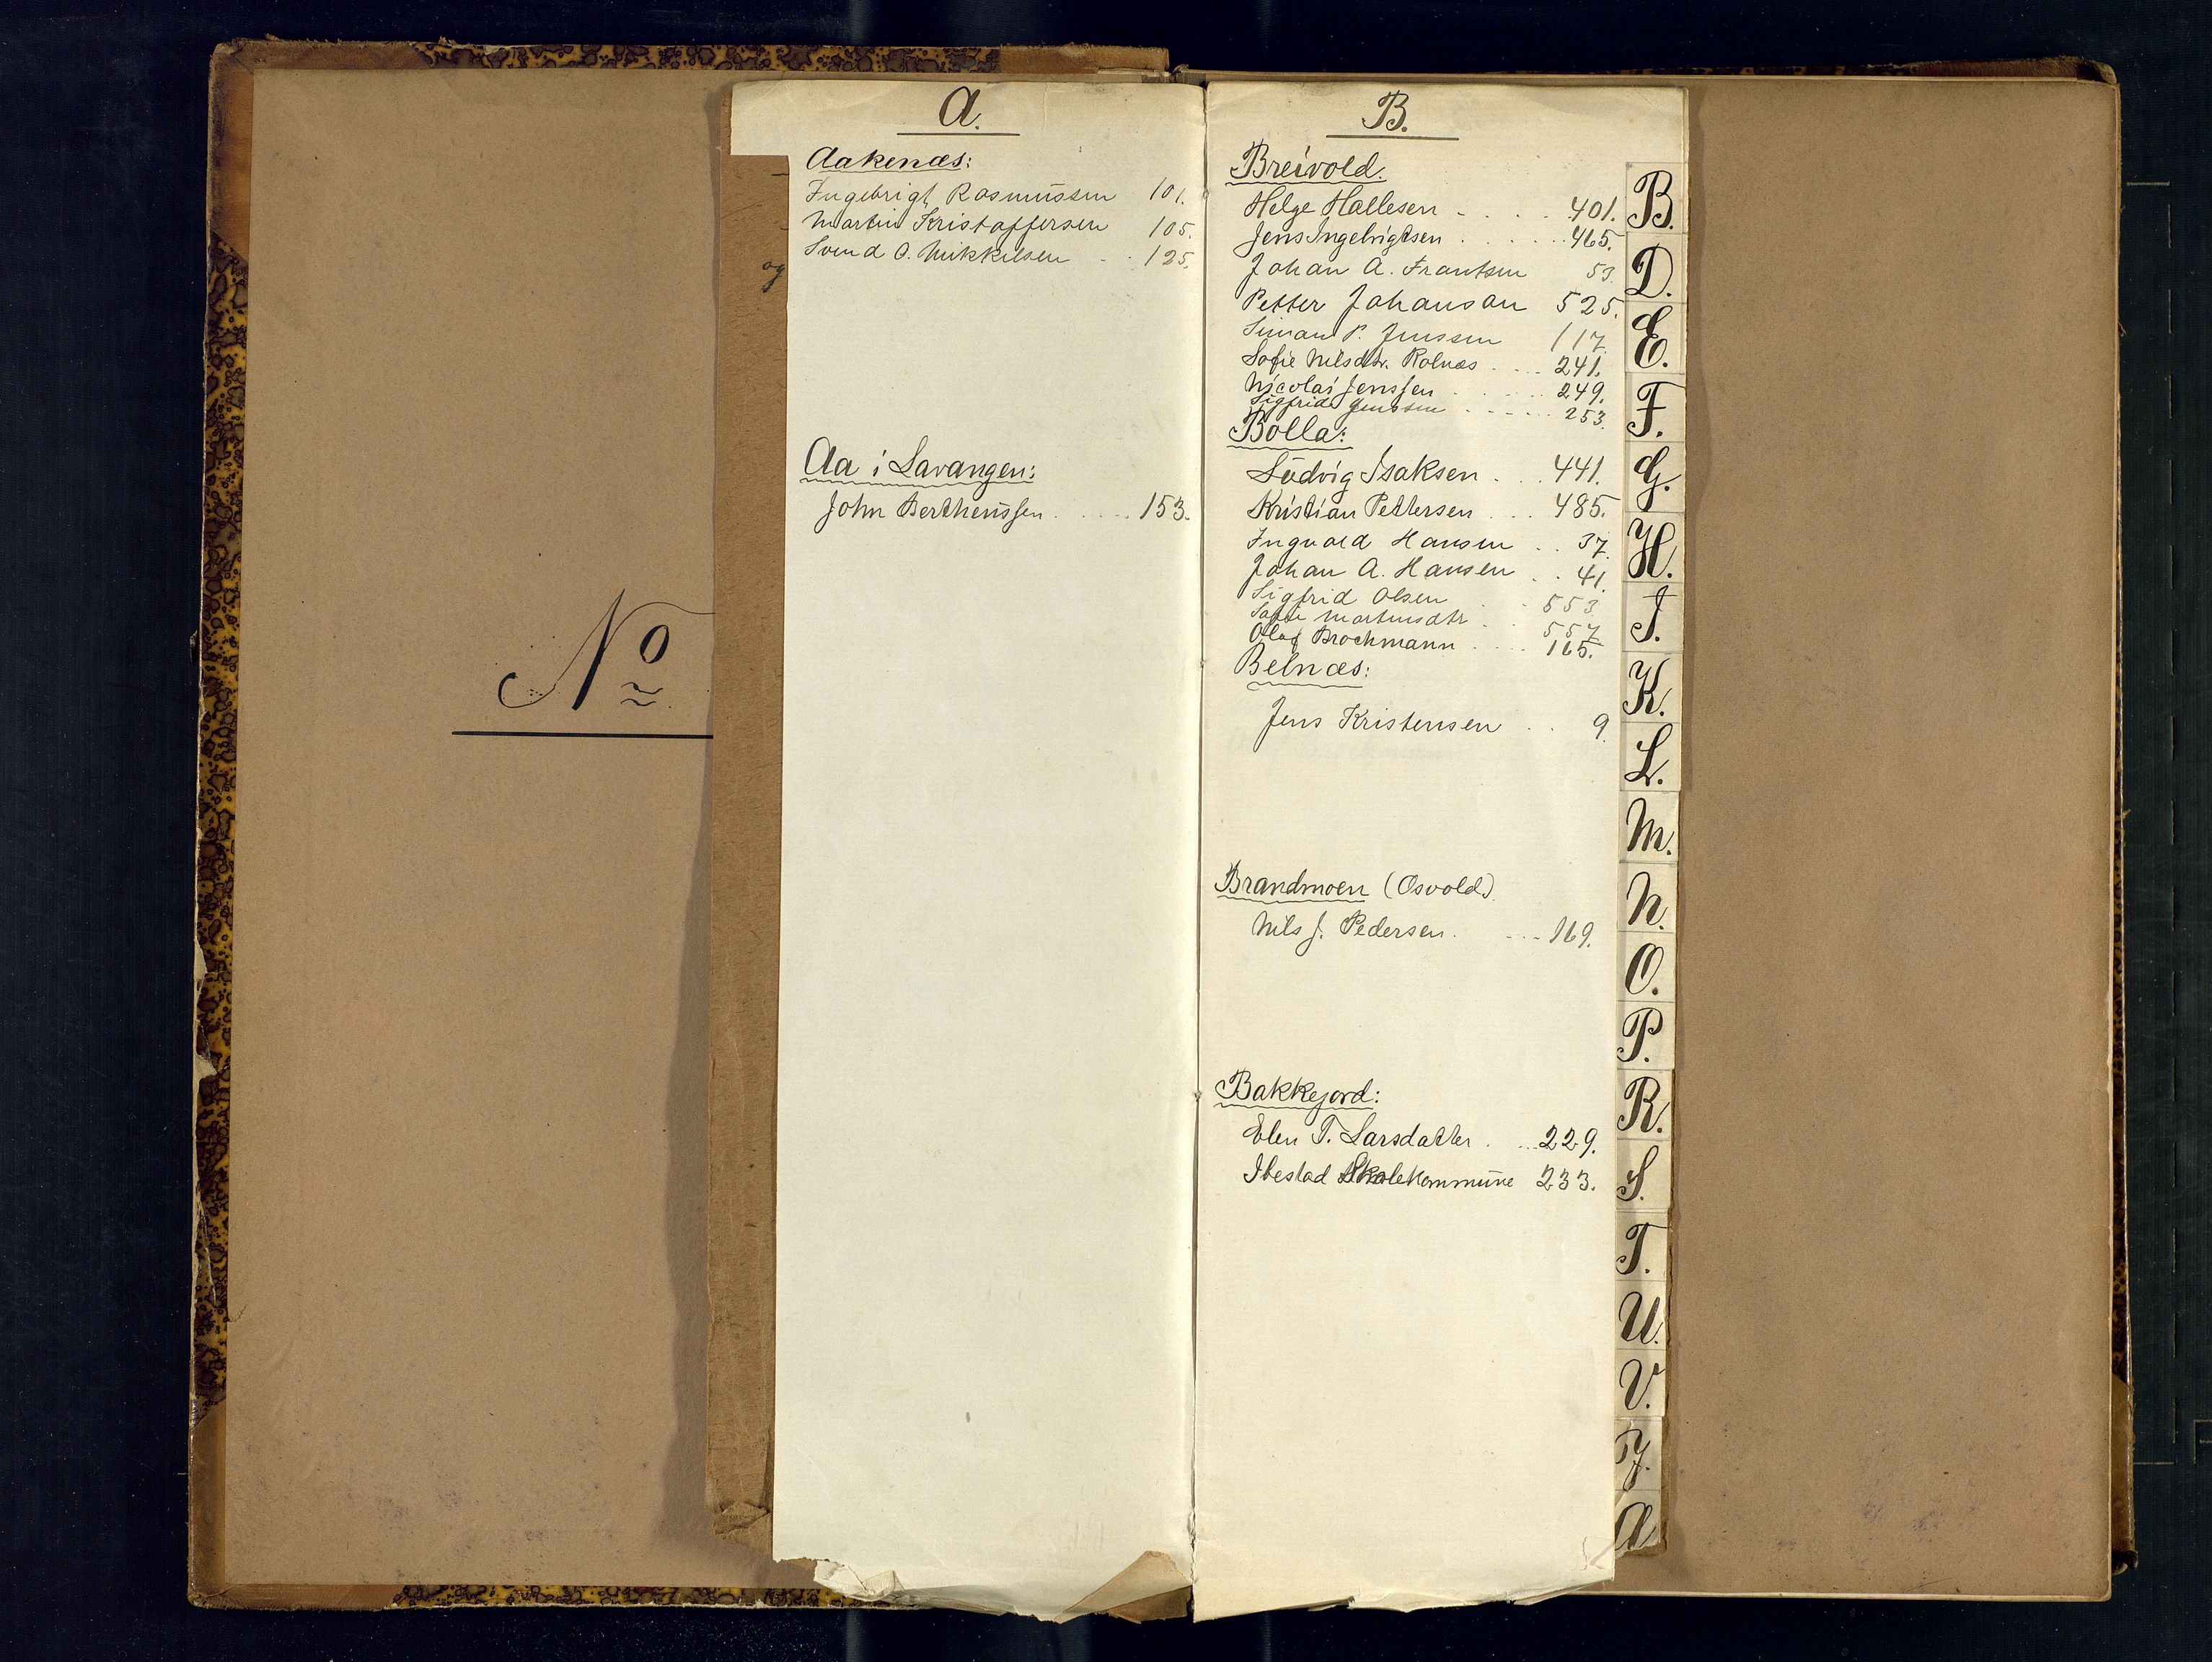 No
og
A.
Aakenæs:
Ingebrigt Rasmussen 101.
Martin Kristoffersen 105.
Svend O. Mikkelsen . . 125.
Aa i Lavangen:
John Bertheussen . . . . . 153.
B.
Breivold.
Helge Hallesen . . . . . 401.
Jens Ingebrigtsen . . . . . . 465.
Johan A. Frantsen 53.
Petter Johanson 525.
Simon P. Jenssen 117.
Sofie Nilsdtr. Rolnæs . . . . 241.
Nicolai Jenssen . . . . . 249.
Sigfrid Jenssen . . . . . . 253.
Bolla:
Ludvig Isaksen . . . . 441.
Kristian Pettersen . . . 485.
Ingvald Hansen . . 37.
Johan A. Hansen . . 41.
Sigfrid Olsen . . 553.
Sofie Martinsdtr . . 557.
Olaf Brochmann . . . . . 165.
Belnæs:
Jens Kristensen . . 9.
Brandmoen (Osvold.)
Nils J. Pedersen. . . . 169.
Bakkejord:
Elen T. Larsdatter . . . . 229.
Ibestad Skolekommune 233.
B.
D.
E.
F.
G.
H.
J.
K.
L.
M.
N.
O.
P.
R.
S.
T.
U.
V.